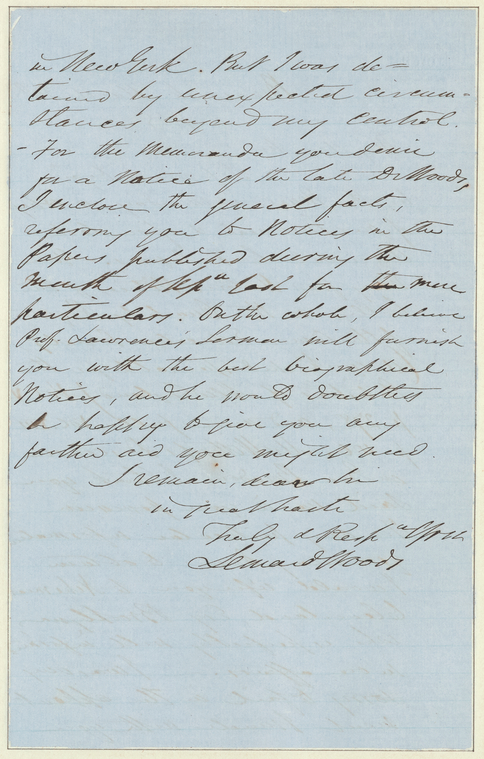 in New York. But I was de=
tained by unexpected circum-
stances beyond my control.
- For the Memoranda you desire
for a Notice of the late Dr Woods,
I enclose the general facts,
referring you to Notices in the
Papers, published during the
Month of Sepr last for the more
particulars. On the whole, I believe
Prof. Lawrence's Sermon will furnish
you with the best biographical
Notices, and he would doubtless
be happy to give you any
farther aid you might need.
I remain, dear Sir
in great haste
Truly & Respy Yours
Leonard Woods